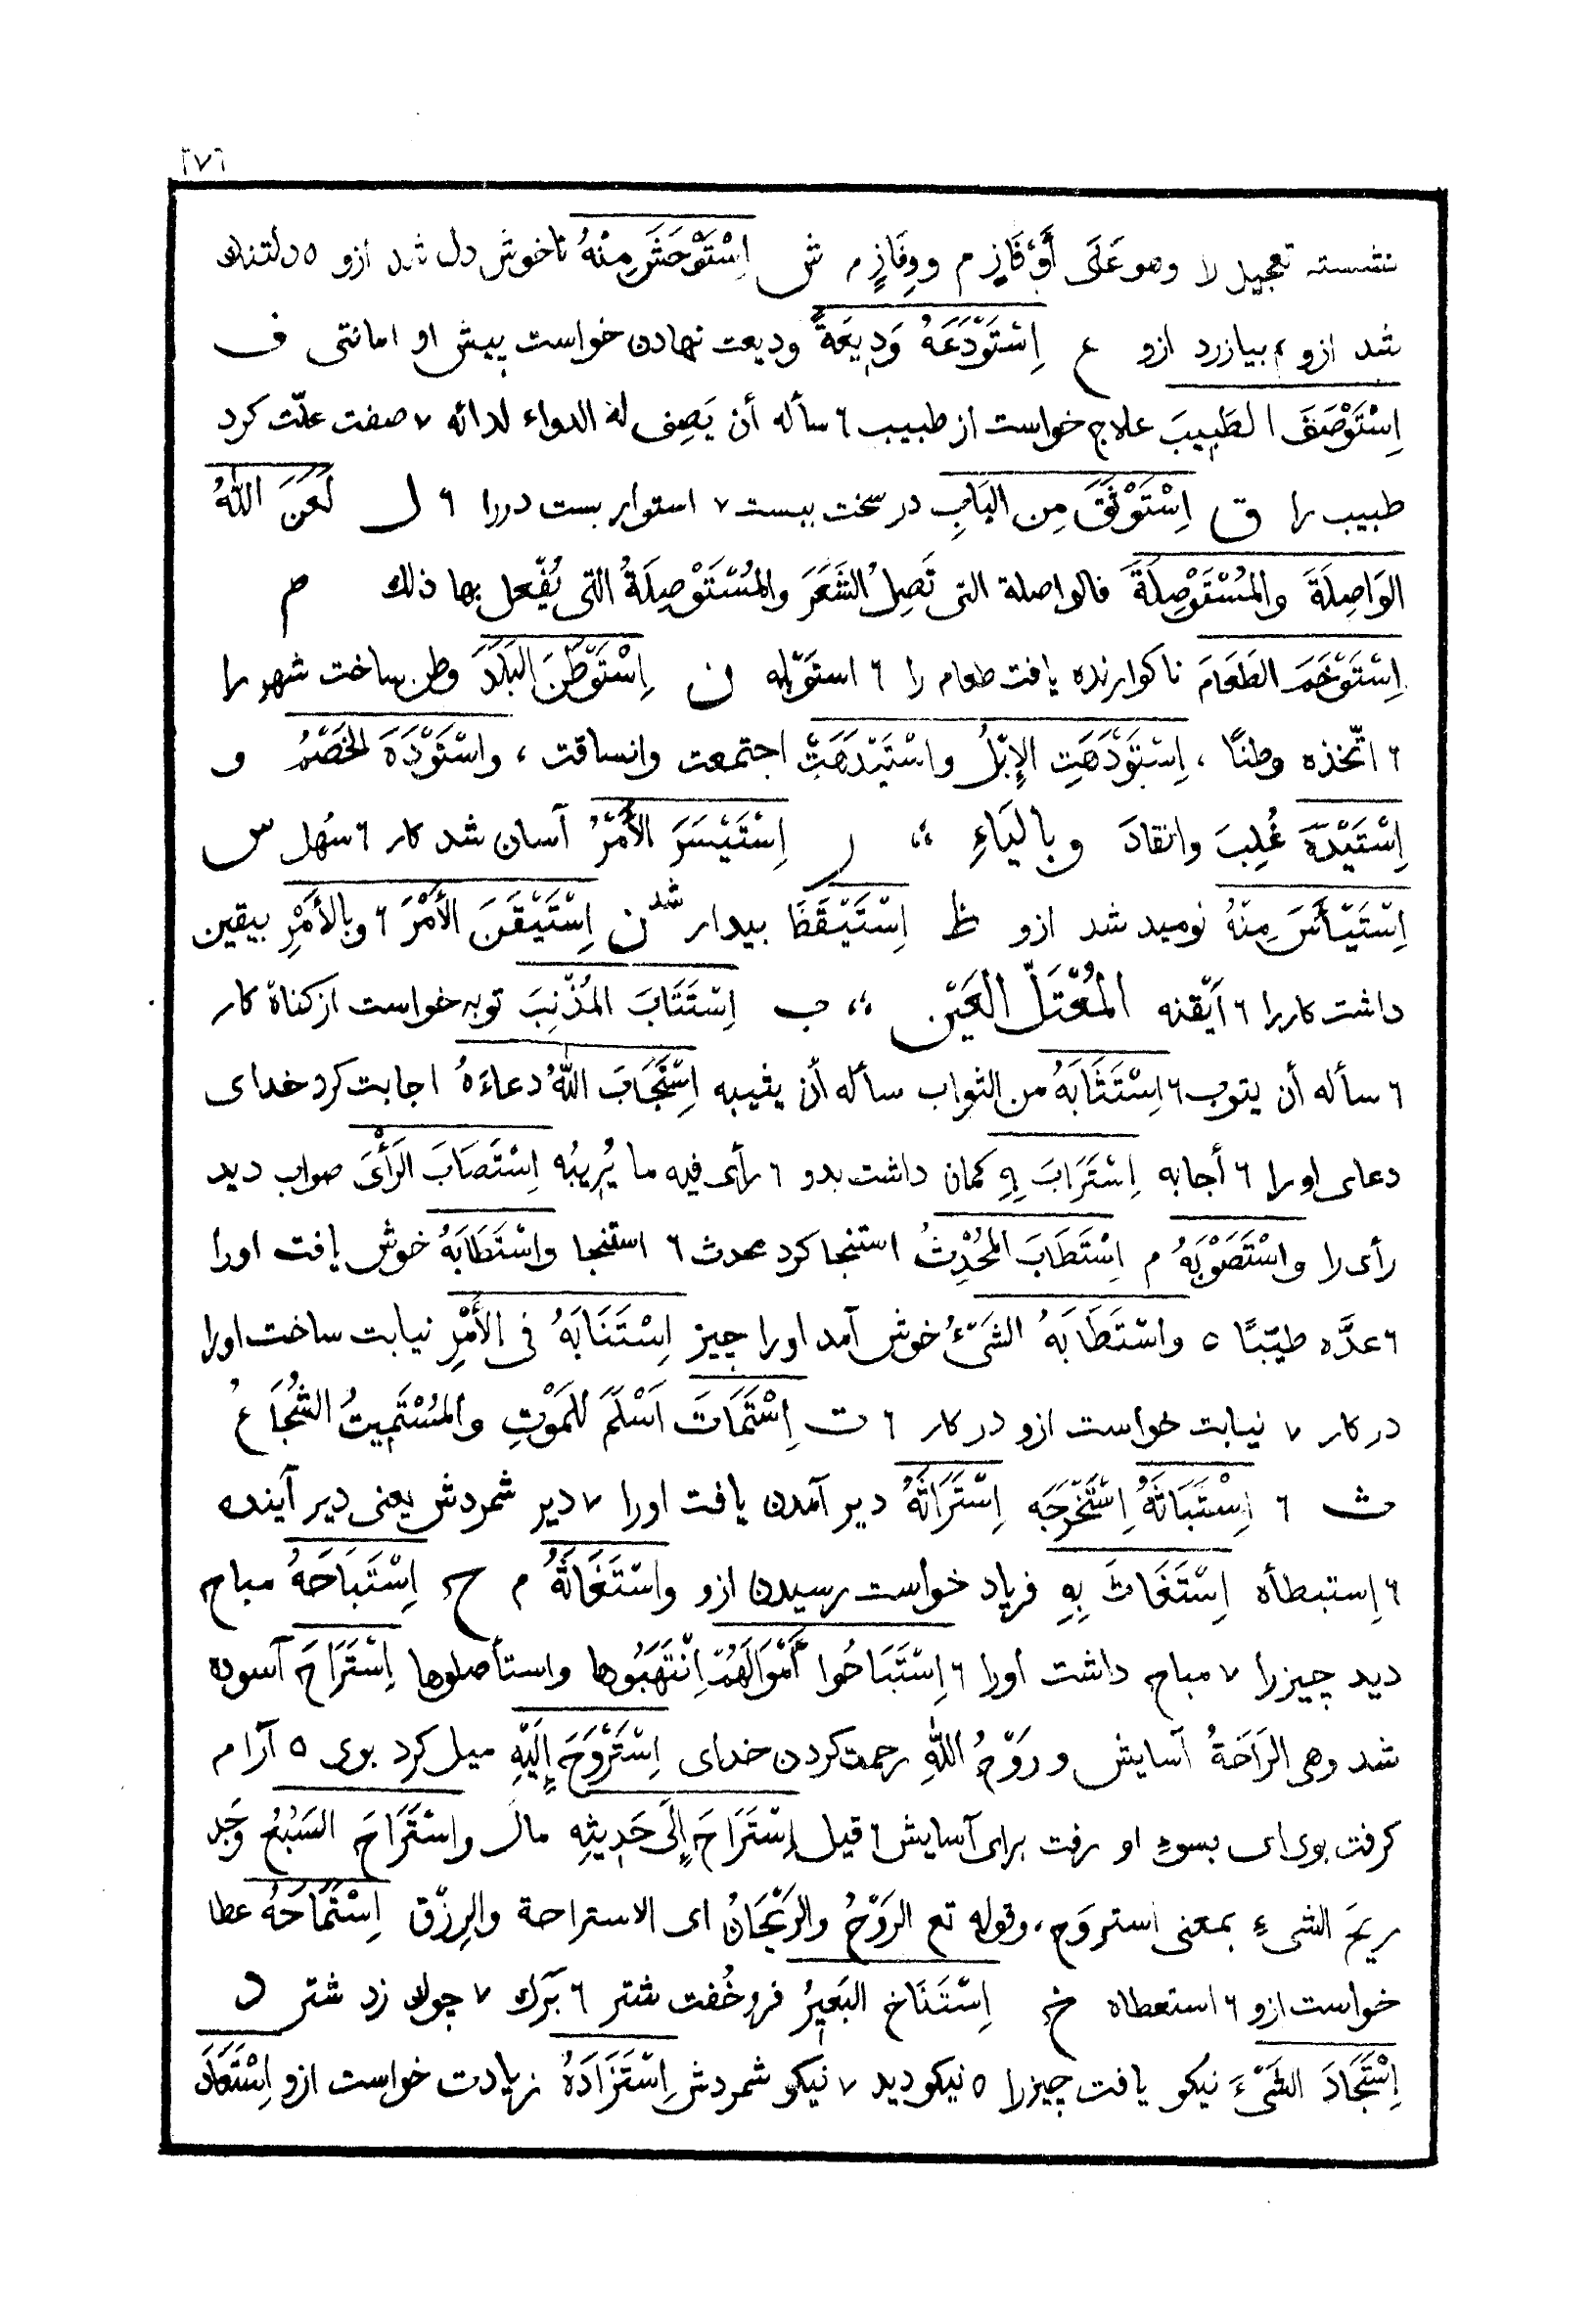 ٢٧٦
نشسته تعجیل را وهو عَلَى أَوْفَازٍ م ووِفَازٍ م ش اِسْتَوْحَشَ مِنْهُ ناخوش دل شد ازو ٥ دلتنك
شد ازو م بیازرد ازو ع اِسْتَوْدَعَهُ وَدِيعَةً ودیعت نهادن خواست پیش او امانتی ف
اِسْتَوْصَفَ الطَبِيبَ علاج خواست از طبیب ٦ سأله أن يَصِف له الدواء لدائه ٧ صفت علّت کرد
طبیب را ق اِسْتَوْثَقَ مِن البَابِ در سخت ببست ٧ استوار بست دررا ٦ ل لَعَنَ اللّٰهُ
الوَاصِلَةَ والمُسْتَوْصِلَةَ فالواصلة التی تَصِلُ الشَعَرَ والمُسْتَوْصِلَةُ التی یُفْعل بها ذلك م
اِسْتَوْخَمَ الطَعَامَ ناکوارنده یافت طعام را ٦ استوبله ن اِسْتَوْطَنَ البَلَدَ وطن ساخت شهر را
٦ اتّخذه وطنًا ، اِسْتَوْدَهَتِ الإِبْلُ واسْتَيْدَهَتْ اجتمعت وانساقت ، واسْتَوْدَهَ الخَصْمُ و
اِسْتَيْدَهَ غُلِبَ وانقادَ وبالیَاءِ ،، ر اِسْتَيْسَرَ الأَمْرُ آسان شد کار ٦ سَهُل س
اِسْتَيْأَسَ مِنْهُ نومید شد ازو ظ اِسْتَيْقَظَ بیدار شد ن اِسْتَيْقَنَ الأَمْرَ ٦ وبِالأَمْرِ بیقین
داشت کاررا ٦ اَیْقنه المُعْتَلّ العَيْن ،، ب اِسْتَتَابَ المُذْنِبَ توبه خواست از کناه کار
٦ سأله أن یتوب ٦ اِسْتَثَابَهُ من الثواب سأله أن یثیبه اِسْتَجَابَ اللّٰهُ دعاءَهُ اجابت کرد خدای
دعای اورا ٦ أجابه اِسْتَرَابَ بِهِ کمان داشت بدو ٦ رأی فیه ما یُرِیبُه اِسْتَصَابَ الرَأْىَ صواب دید
رأی را واسْتَصْوَبَهُ م اِسْتَطَابَ المُحْدِثُ استنجا کرد محدث ٦ استنجا واسْتَطَابَهُ خوش یافت اورا
٦ عدَّه طیّبًا ٥ واسْتَطَابَهُ الشَىْءُ خوش آمد اورا چیز اِسْتَنَابَهُ فی الأَمْرِ نیابت ساخت اورا
در کار ٧ نیابت خواست ازو در کار ٦ ت اِسْتَمَاتَ اَسْلَمَ لِلمَوْتِ والمُسْتَمِيتُ الشُجَاعُ
ث ٦ اِسْتَبَاثَهُ اِسْتَخْرَجَه اِسْتَرَاثَهُ دیر آمدن یافت اورا ٧ دیر شمردش یعنی دیر آینده
٦ اِستبطأه اِسْتَغَاثَ بِهِ فریاد خواست رسیدن ازو واسْتَغَاثَهُ م ح اِسْتَبَاحَهُ مباح
دید چیزرا ٧ مباح داشت اورا ٦ اِسْتَبَاحُوا أَمْوَالَهُمْ اِنْتَهَبُوها واستأصلوها اِسْتَرَاحَ آسوده
شد وهی الرَاحَةُ آسایش ورَوْحُ اللّٰهِ رحمت کردن خدای اِسْتَرْوَحَ إِلَيْهِ میل کرد بوی ٥ آرام
کرفت بوی ای بسوءِ او رفت برای آسایش ٦ قیل اِسْتَرَاحَ إِلَى حَدِيثِهِ مالَ واسْتَرَاحَ السَبُعُ وَجَد
ریحَ الشیءِ بمعنی استروَح ، وقوله تع الرَوْحُ والرَيْحَانُ ای الاستراحة والرِزْق اِسْتَمَاحَهُ عطا
خواست ازو ٦ استعطاه خ اِسْتَنَاخَ البَعِيرُ فروخُفت شتر ٦ بَرَك ٧ چوك زد شتر د
اِسْتَجَادَ الشَىْءَ نیکو یافت چیزرا ٥ نیکو دید ٧ نیکو شمردش اِسْتَزَادَهُ زیادت خواست ازو اِسْتَعَادَ